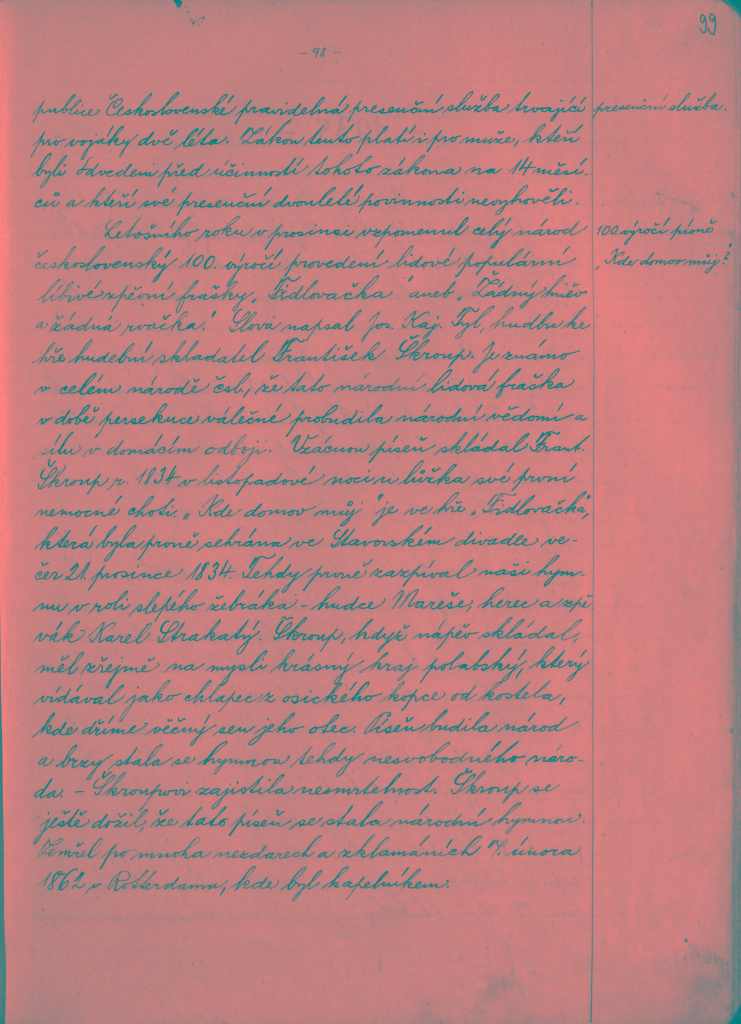 99
- 98 -
publice Československé pravidelná presenční služba trvající
presenční služba.
pro vojáky dvě léta. Zákon tento platí i pro muže, kteří
byli odvedeni před účinností tohoto zákona na 14 měsí-
ců a kteří své presenční dvouleté povinnosti nevyhověli.
Letošního roku v prosinci vzpomenul celý národ
100. výročí písně
československý 100. výročí provedení lidové populární
"Kde domov můj".
líbivé zpěvní frašky "Fidlovačka" aneb "Žádný hněv
a žádná rvačka." Slova napsal Jos. Kaj. Tyl, hudbu ke
hře hudební skladatel František Škroup. Je známo
v celém národě čsl., že tato národní lidová fraška
v době persekuce válečné probudila národní vědomí a
sílu v domácím odboji. Vzácnou píseň skládal Frant.
Škroup r. 1834 v listopadové noci u lůžka své první
nemocné choti. "Kde domov můj" je ve hře "Fidlovačka",
která byla prvně sehrána ve Stavovském divadle ve-
čer 21. prosince 1834. Tehdy prvně zazpíval naši hym-
nu v roli slepého žebráka - hudce Mareše, herec a zpě
vák Karel Strakatý. Škroup, když nápěv skládal,
měl zřejmě na mysli krásný kraj polabský, který
vídával jako chlapec z osického kopce od kostela,
kde dříme věčný sen jeho otec. Píseň budila národ
a brzy stala se hymnou tehdy nesvobodného náro-
da. - Škroupovi zajistila nesmrtelnost. Škroup se
ještě dožil, že tato píseň se stala národní hymnou.
Zemřel po mnoha nezdarech a zklamáních 7. února
1862 v Rotterdamu, kde byl kapelníkem.